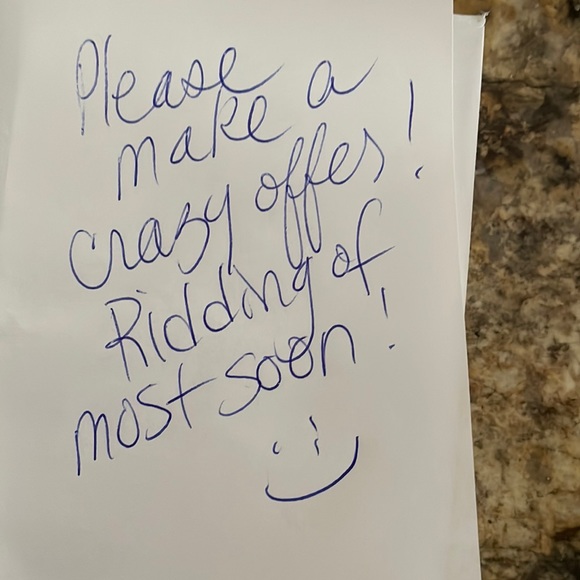 Please
make a
crazy offer!
Ridding of
most soon!